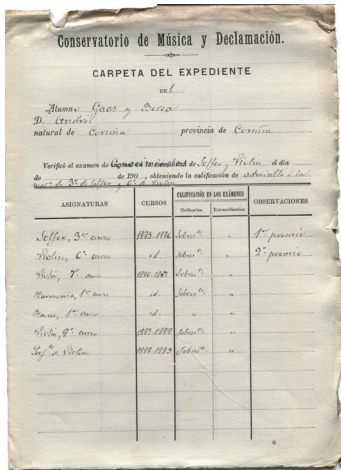 Conservatorio de Música y Declamación.
CARPETA DEL EXPEDIENTE
DEL
Alumno Gaos y Berea
D. Andrés
natural de Coruña provincia de Coruña
Verificó el examen de de Solfeo y Violín el día
de de 190 , obteniendo la calificación de admisible á la
de 3º de Solfeo y 6º de Violín
ASIGNATURAS CURSOS CALIFICACIÓN EN LOS EXÁMENES OBSERVACIONES
Ordinarios Extraordinarios
Solfeo, 3er curso 1885-1886 Sobrte. " 1er premio
Violín, 6º curso id. Sobrte. " 2º premio
Violín, 7º curso 1886-1887 Sobrte. "
Harmonía, 1er curso id. Sobrte. "
1er curso id. " "
Violín, 8º curso 1887-1888 Sobrte. "
de Violín 1888-1889 Sobrte. "